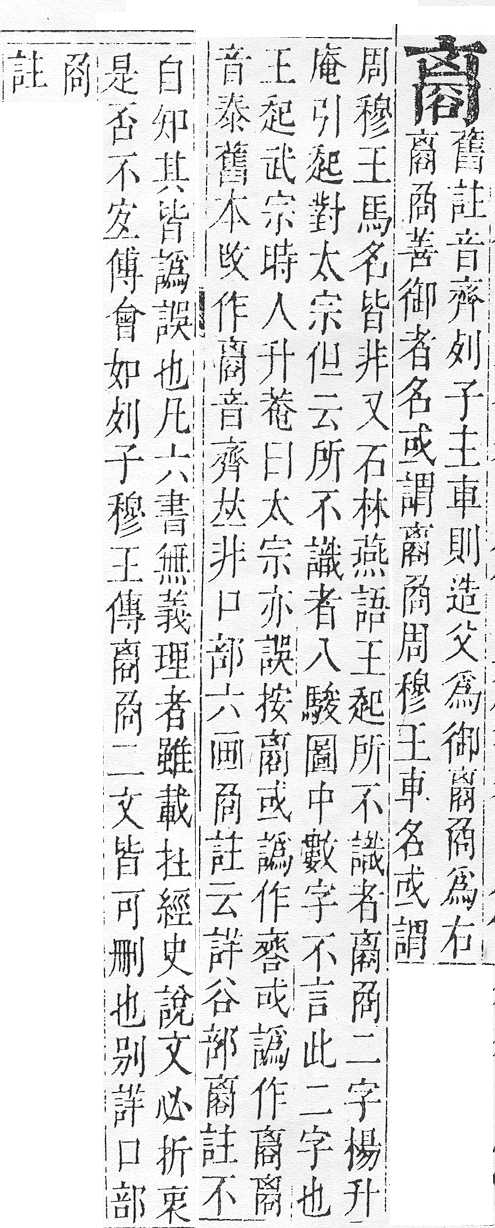 舊註音齊列子主車則造父爲御爲右
善御者名或謂周穆王車名或謂
周穆王馬名皆非又石林燕語王起所不識者二字楊升
庵引起對太宗但云所不識者八駿圖中數字不言此二字也
王起武宗時人升菴曰太宗亦誤按或譌作或譌作
音泰舊本改作音齊𠀤非口部六画註云詳谷部註不
自知其皆譌誤也凡六書無義理者雖載在經史說文必折衷
是否不宐傅會如列子穆王傳二文皆可刪也别詳口部
註